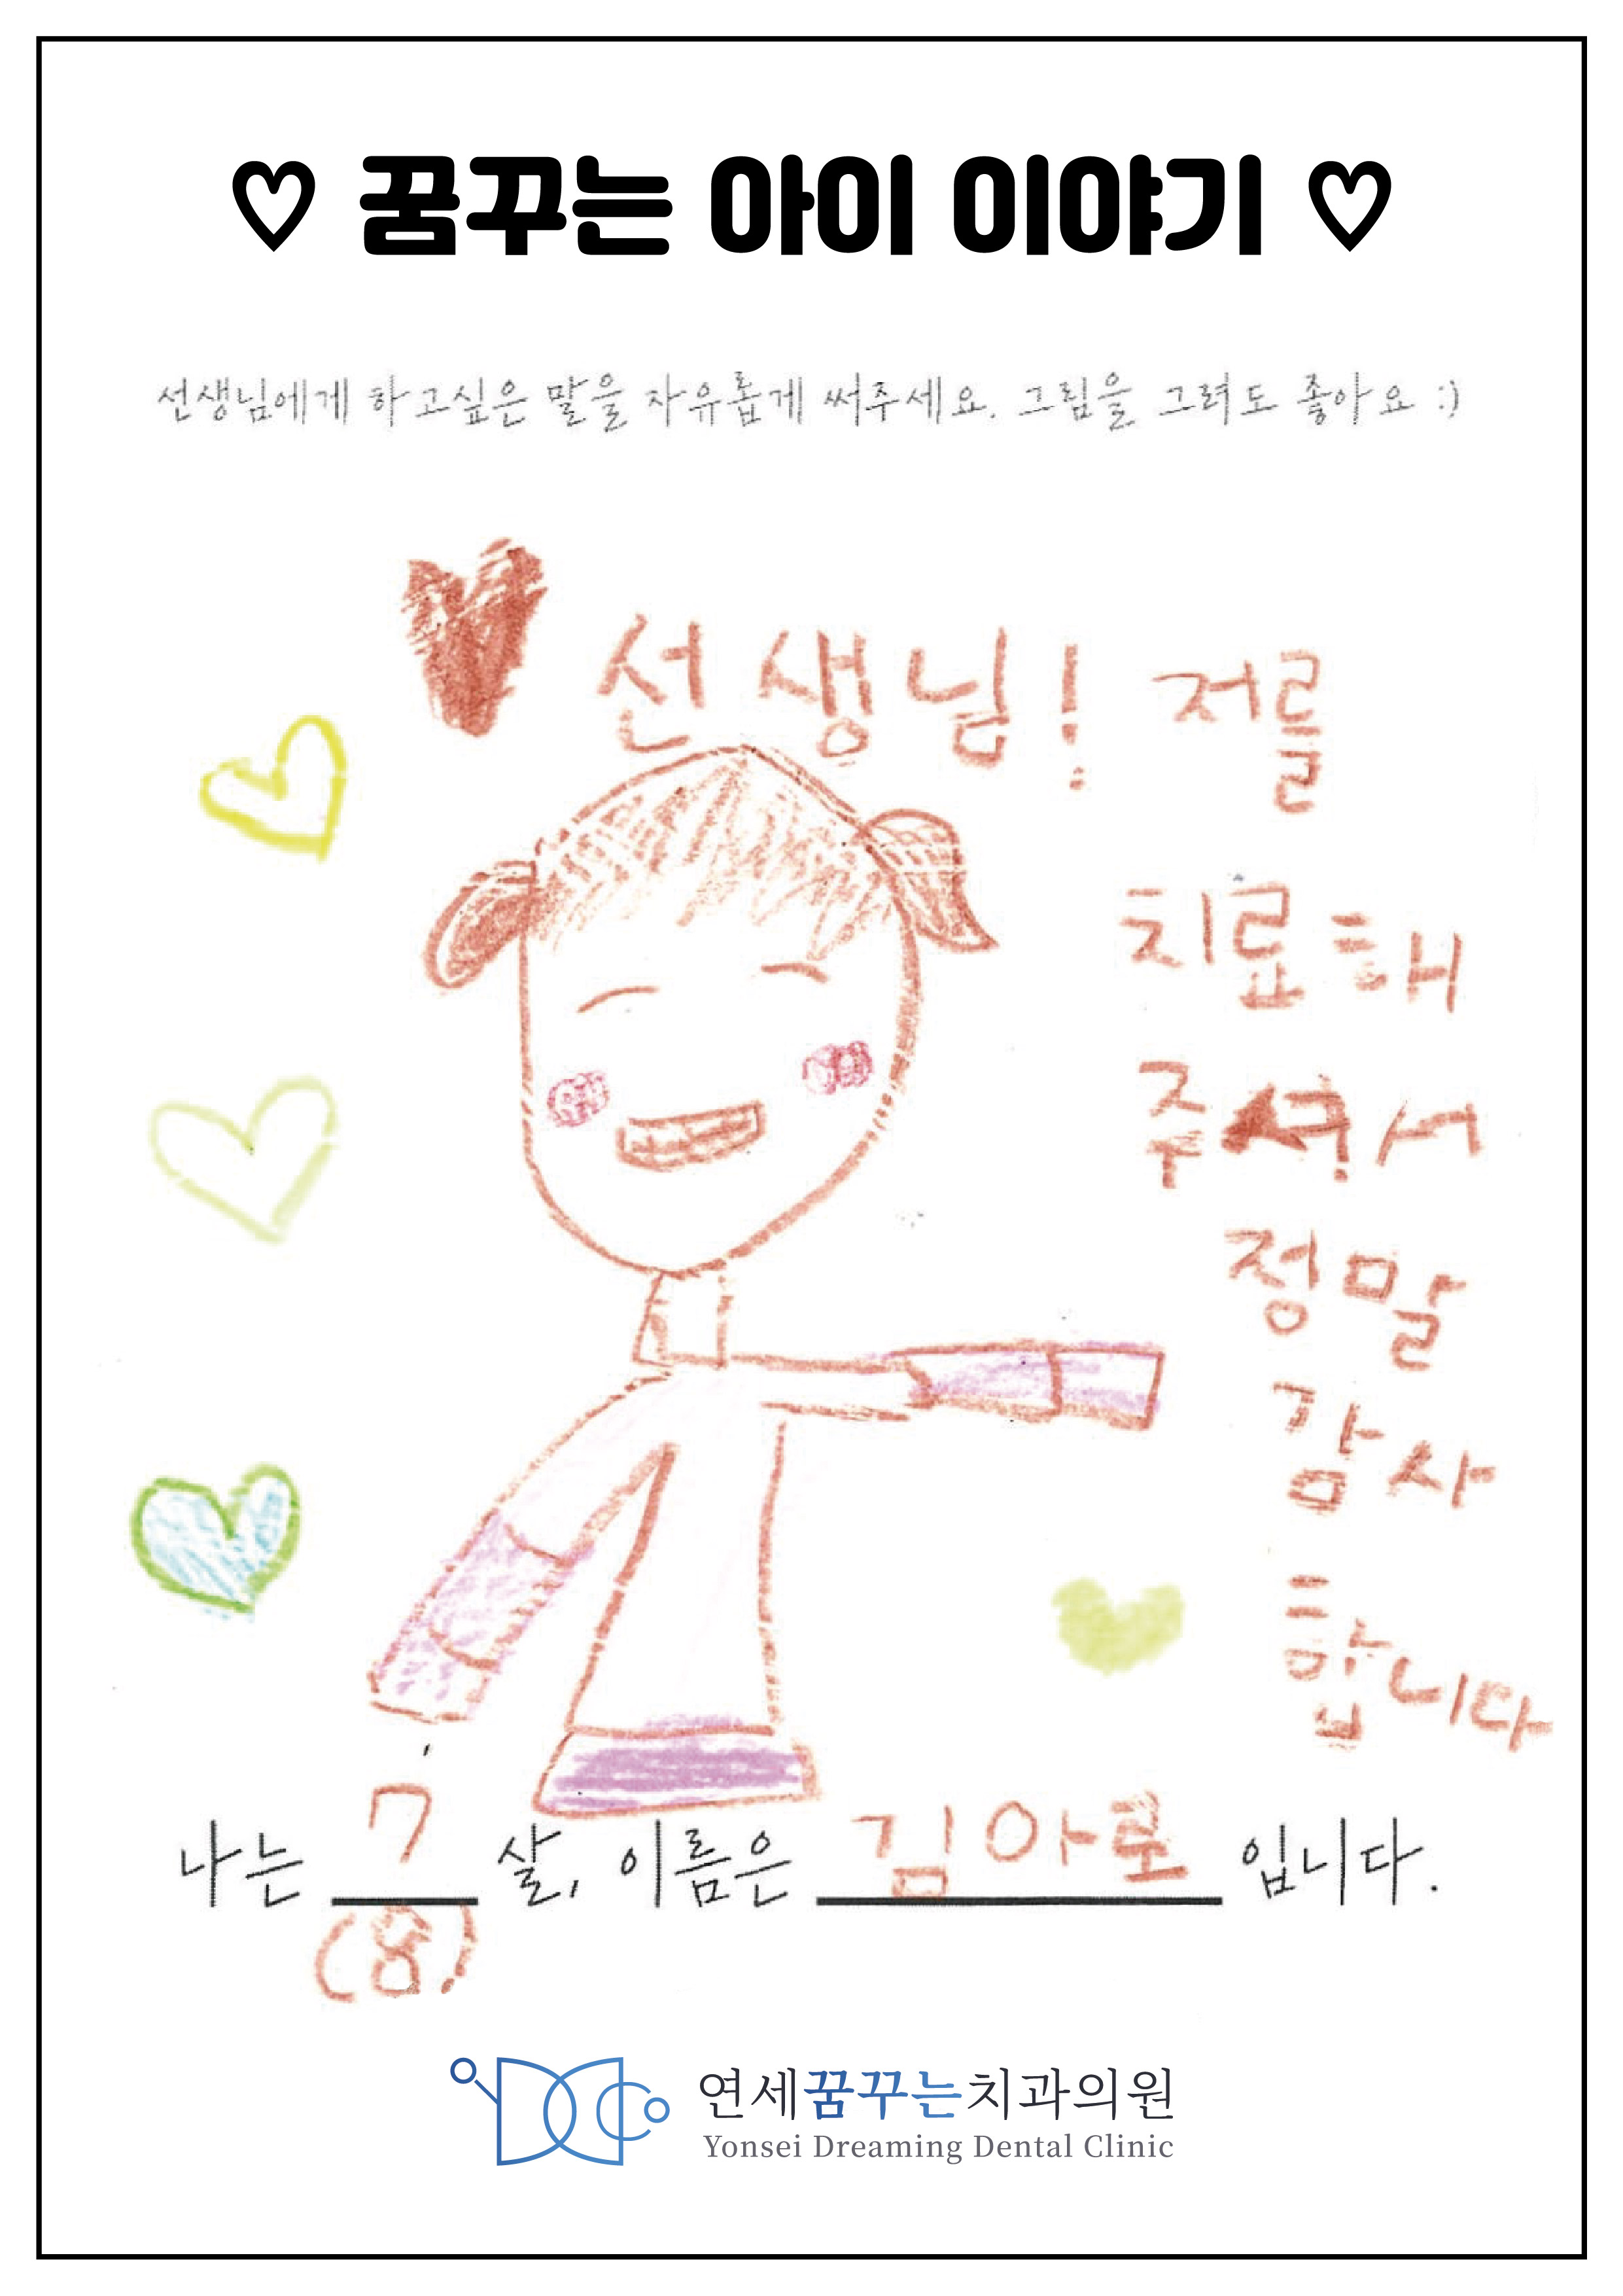 ♡ 꿈꾸는 아이 이야기 ♡
선생님에게 하고싶은 말을 자유롭게 써주세요. 그림을 그려도 좋아요 :)
선생님! 저를
치료해
주셔서
정말
감사
합니다
나는 7 살, 이름은 김아로 입니다.
(8)
연세꿈꾸는치과의원
Yonsei Dreaming Dental Clinic